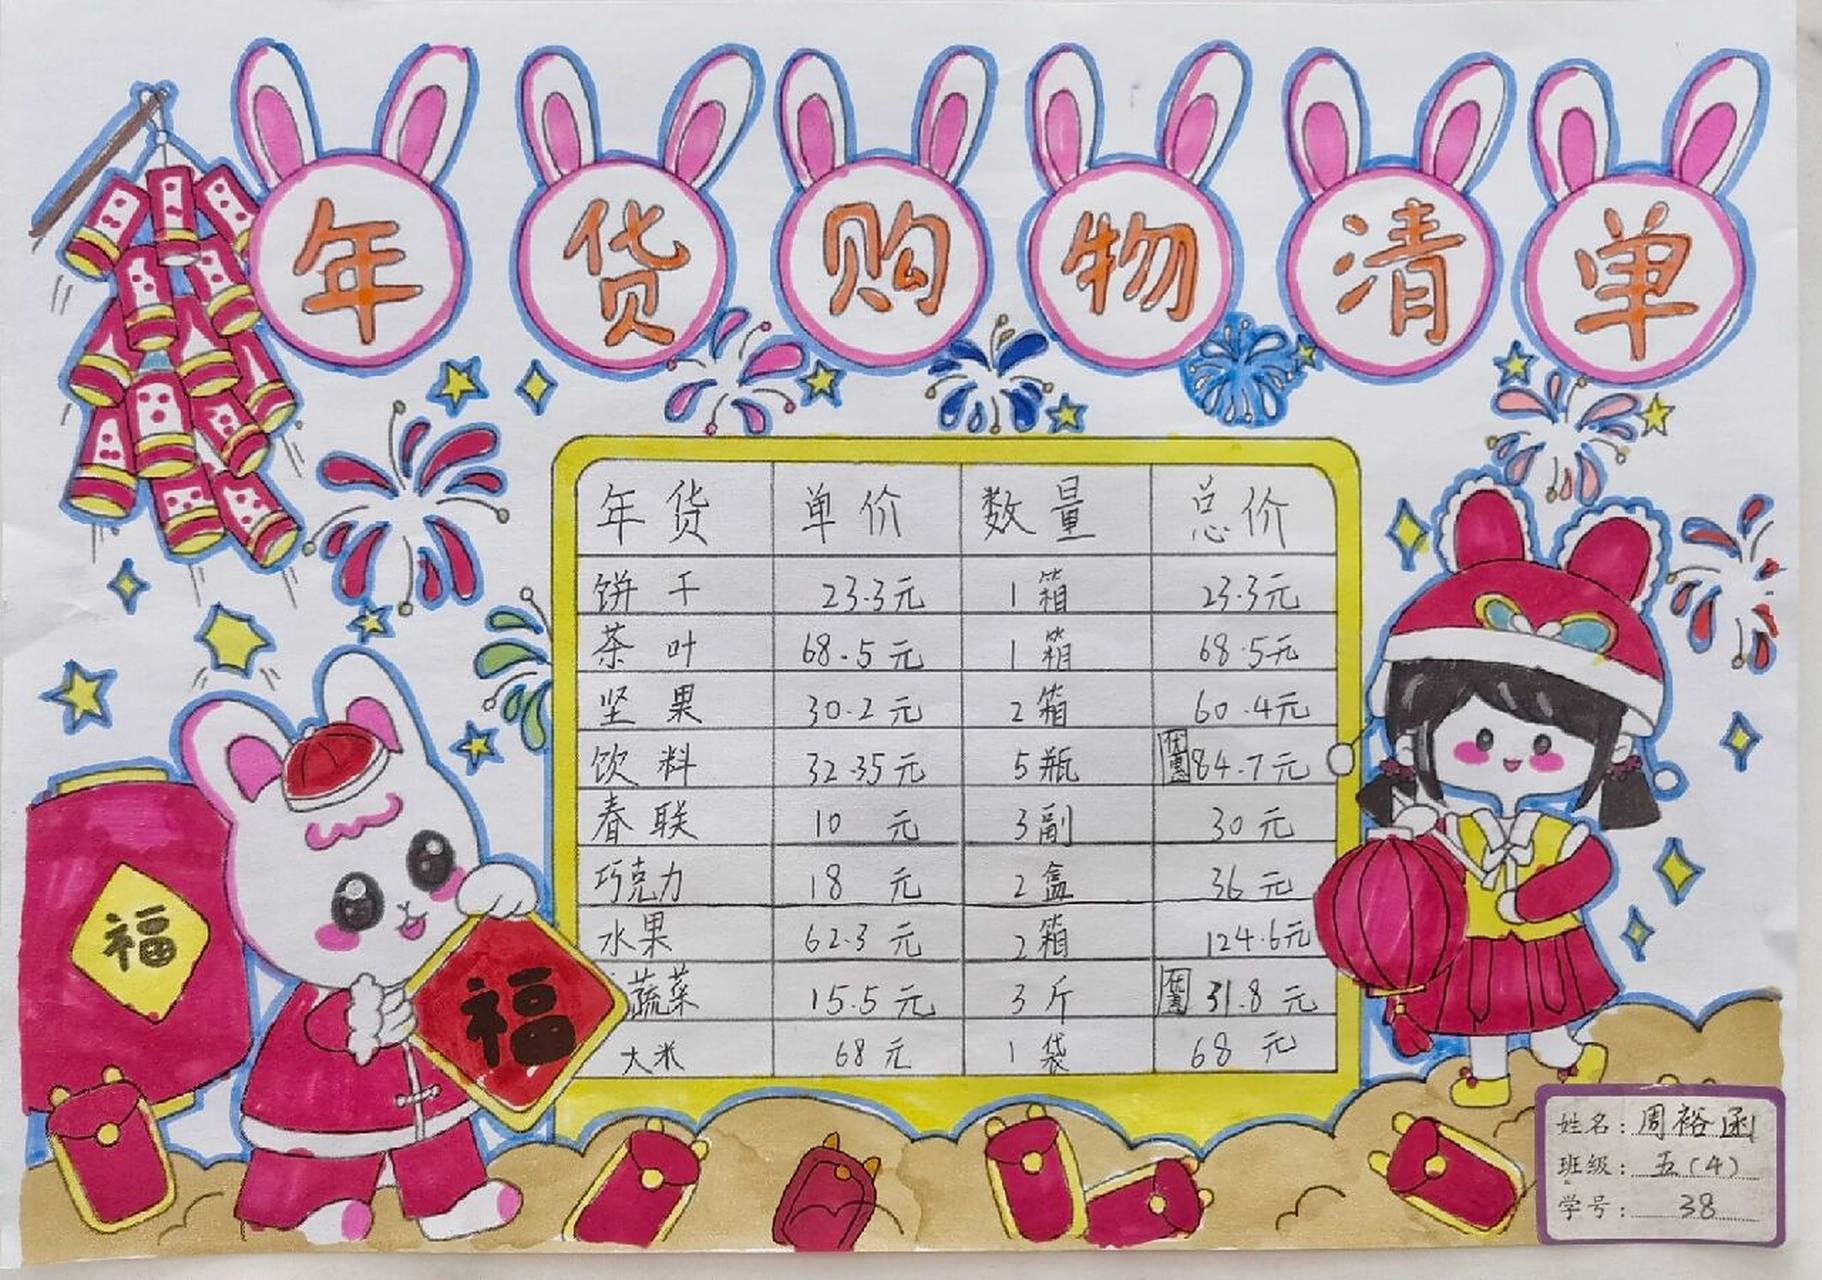 年货购物清单
年货 单价 数量 总价
饼干 23.3元 1箱 23.3元
茶叶 68.5元 1箱 68.5元
坚果 30.2元 2箱 60.4元
饮料 32.35元 5瓶 优惠84.7元
春联 10元 3副 30元
巧克力 18元 2盒 36元
水果 62.3元 2箱 124.6元
蔬菜 15.5元 3斤 优惠31.8元
大米 68元 1袋 68元
福
福
姓名:周裕函
班级:五(4)
学号:38